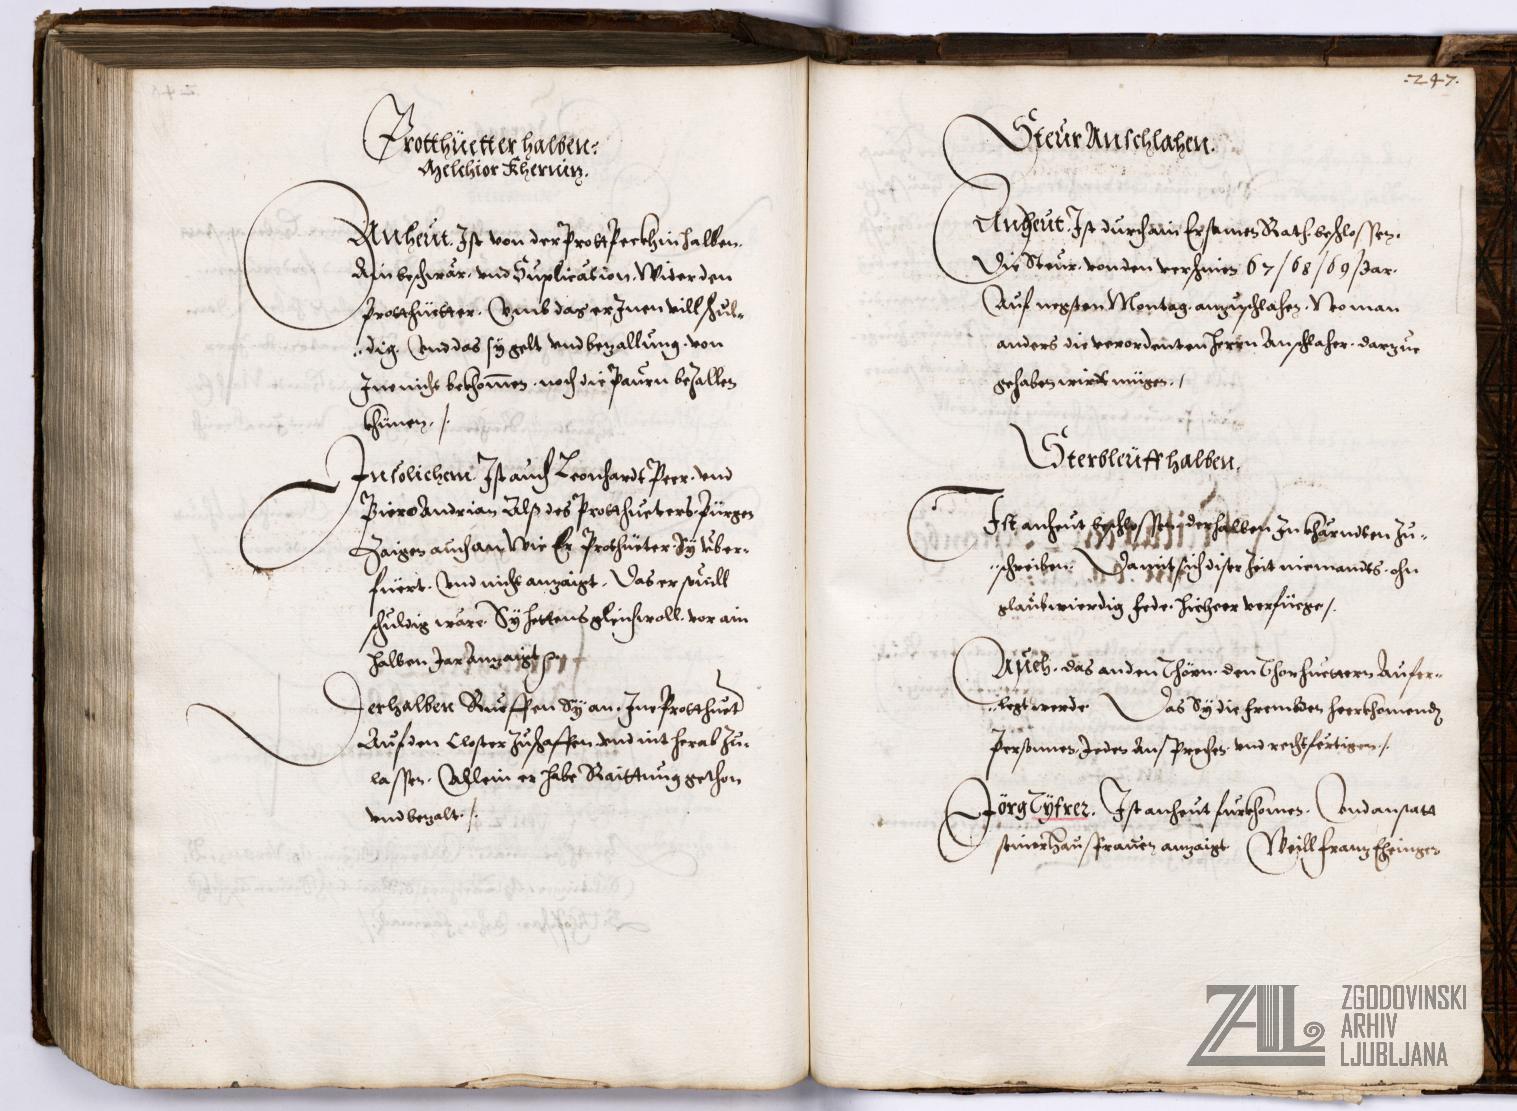 Protthüetter halben.
Melchior Khernin.
Anheut. Ist von der Prott Peckhin halben.
Ain beschwär. und Suplication. Wider den
Protthüetter. Umb das er Inen vill schul-
dig. Und das sy gelt und bezallung. von
Ime nicht bekhomen. noch die Paurn bezallen
khünen. /.
In solichem Ist auch Leonhardt Peer. und
Piero Andrian Alss des Protthueters Pürgen
Zaigen auch an Wie Er Prothüeter Sy Uber-
füert. Und nicht anzaigt. Das er so vill
schuldig wäre. Sy hettens gleichwoll. vor ain
halben Jar Anzaigt
Derhalben Rueffen Sy an. Ine Protthuet
Auf den Closter zuschaffen. und nit herab zu-
lassen. Allein er habe Raittung gethon
und bezalt. /.
.247.
Steur Anschlahen.
Anheut. Ist durch ain Ersamen Rath beschlossen.
Die Steur. von den verschinen 67 / 68 / 69 Jar.
Auf negsten Montag. anzuschlahen. Wo man
anders die verordenten Herrn Anschlaher. darzue
gehaben wirdt mügen. /
Sterbleüff halben.
Ist anheut beschlossen derhalben In khärndten zu-
schreiben. Damit sich diser Zeit niemandts. ohn
glaubwierdig fede. hieheer verfüege /.
Auch. das an den Thörn. den Thorhuettern Aufer-
legt werde. Das Sy die frembden heerkhomende
Persone Jeden Ansprechen und rechtfertigen /.
Jörg Tyfrer. Ist anheut fürkhomen. Und anstatt
seiner Hausfrauen anzaigt Weill Franz
ZAL
ZGODOVINSKI
ARHIV
LJUBLJANA